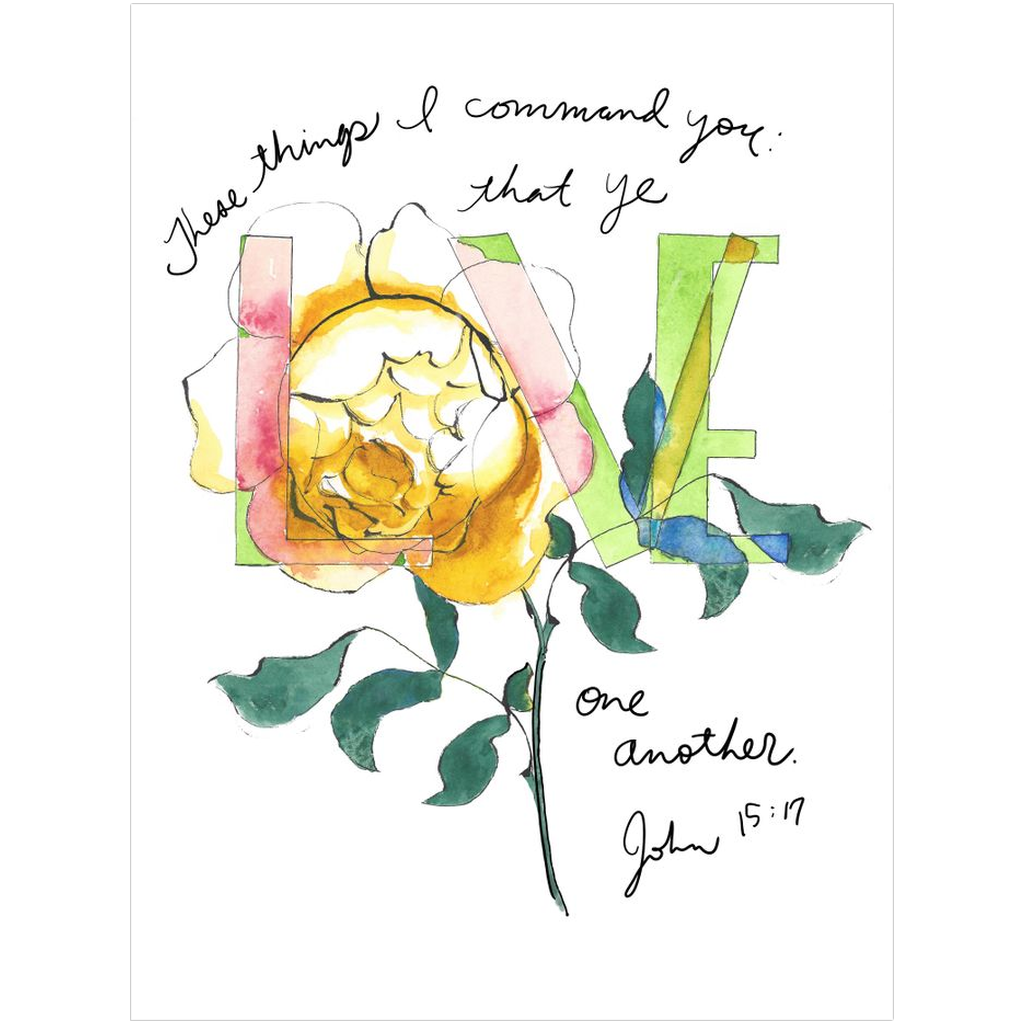 These things I command you:
that ye
LOVE
one
another.
John 15:17